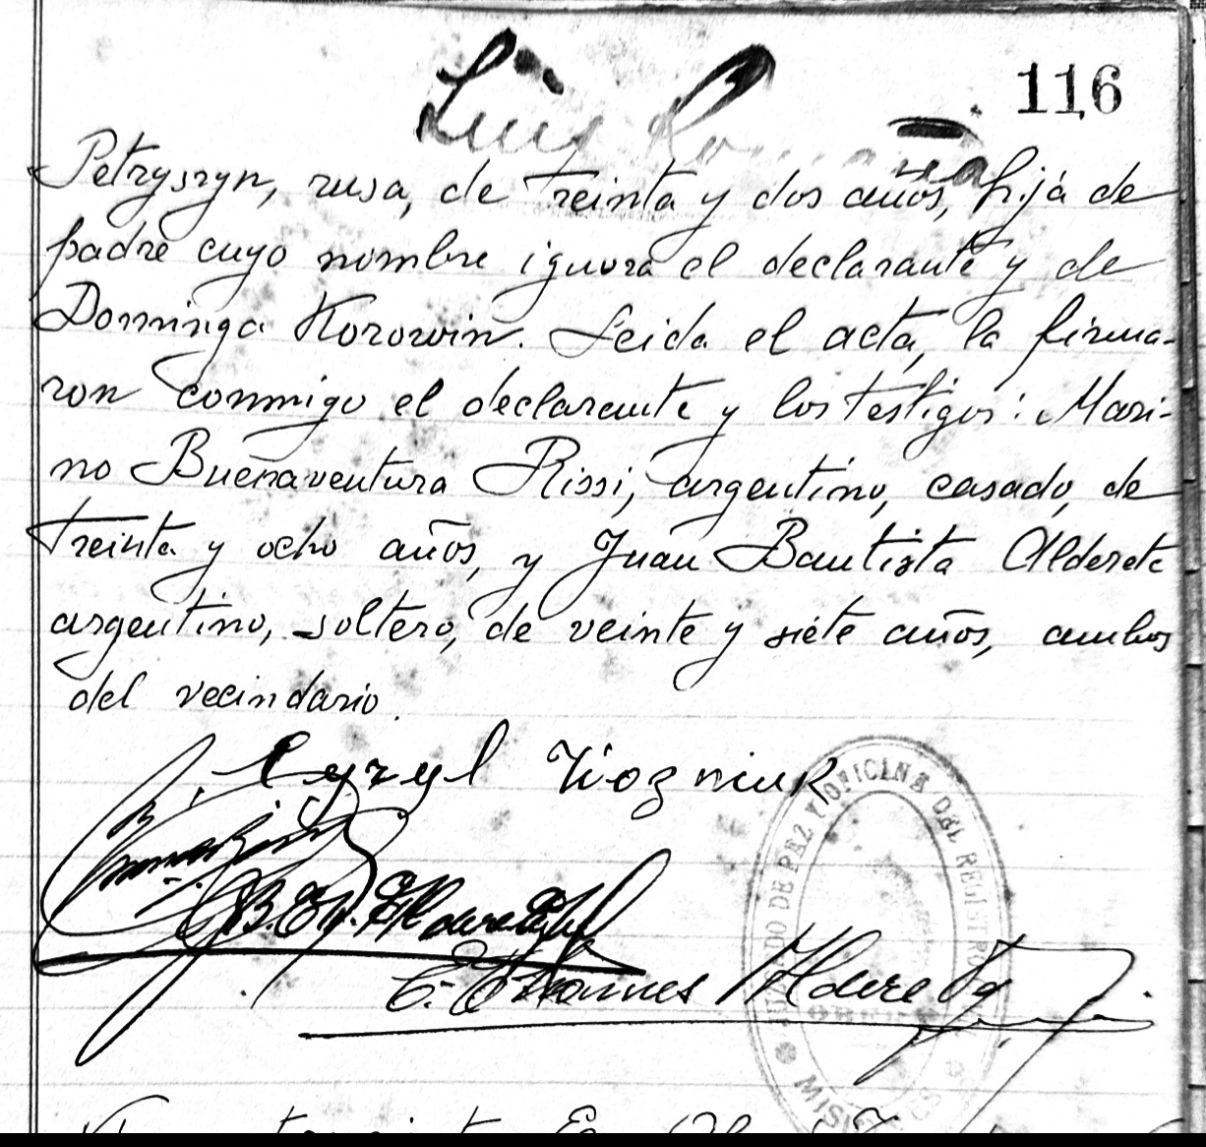 116
Luis
Petryszyn, rusa, de treinta y dos años, hija de
padre cuyo nombre ignora el declarante y de
Dominga Korowin. Leida el acta, la firma-
ron conmigo el declarante y los testigos: Mari-
no Buenaventura Rissi, argentino, casado, de
treinta y ocho años, y Juan Bautista Alderete
argentino, soltero, de veinte y siete años, ambos
del vecindario.
Cyryl Wozniuk
Alderete
JUZGADO DE PAZ Y OFICINA DEL REGISTRO
OBERA
MISIONES